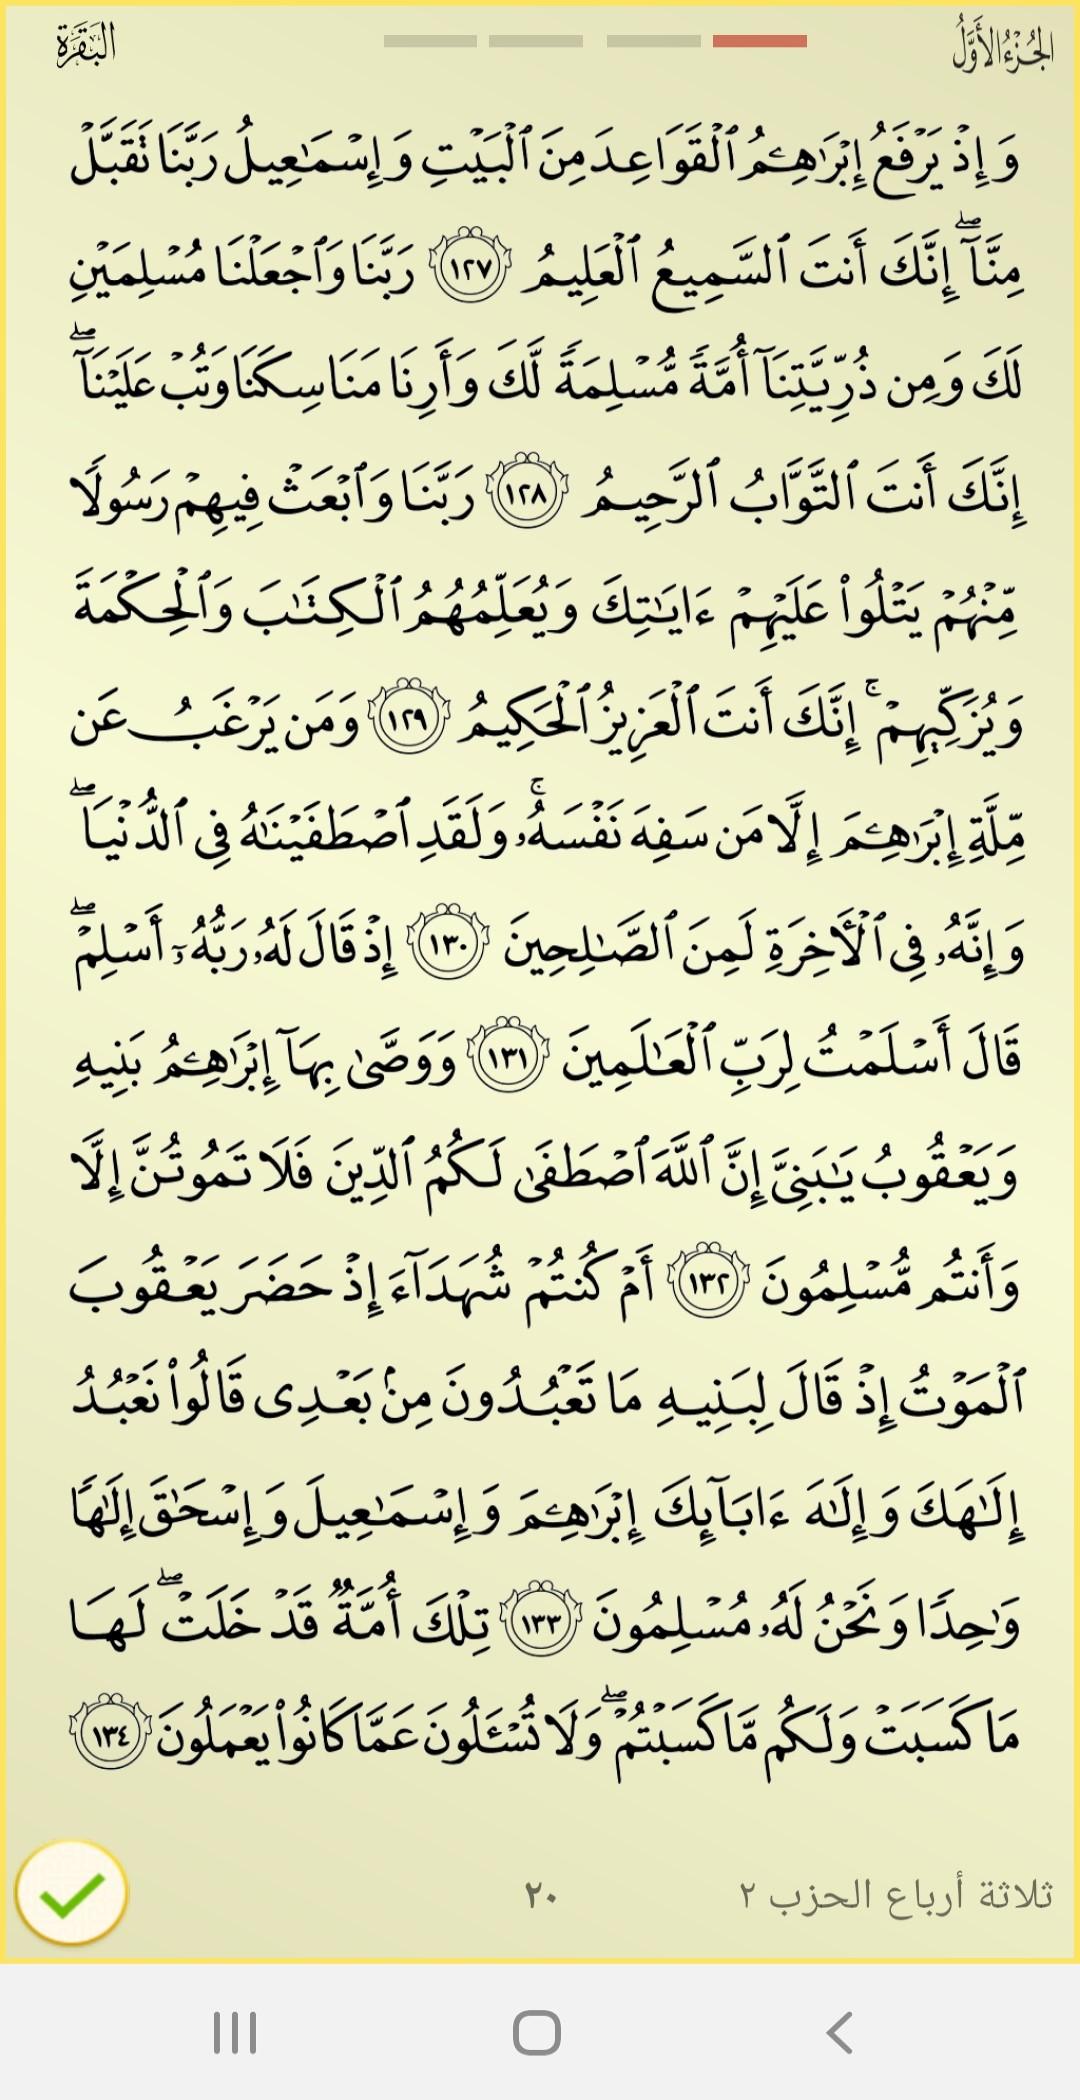 الجُزْءُ الأَوَّلُ
البَقَرَة
وَإِذْ يَرْفَعُ إِبْرَٰهِـۧمُ ٱلْقَوَاعِدَ مِنَ ٱلْبَيْتِ وَإِسْمَـٰعِيلُ رَبَّنَا تَقَبَّلْ
مِنَّآ ۖ إِنَّكَ أَنتَ ٱلسَّمِيعُ ٱلْعَلِيمُ ١٢٧ رَبَّنَا وَٱجْعَلْنَا مُسْلِمَيْنِ
لَكَ وَمِن ذُرِّيَّتِنَآ أُمَّةً مُّسْلِمَةً لَّكَ وَأَرِنَا مَنَاسِكَنَا وَتُبْ عَلَيْنَآ ۖ
إِنَّكَ أَنتَ ٱلتَّوَّابُ ٱلرَّحِيمُ ١٢٨ رَبَّنَا وَٱبْعَثْ فِيهِمْ رَسُولًا
مِّنْهُمْ يَتْلُوا۟ عَلَيْهِمْ ءَايَـٰتِكَ وَيُعَلِّمُهُمُ ٱلْكِتَـٰبَ وَٱلْحِكْمَةَ
وَيُزَكِّيهِمْ ۚ إِنَّكَ أَنتَ ٱلْعَزِيزُ ٱلْحَكِيمُ ١٢٩ وَمَن يَرْغَبُ عَن
مِّلَّةِ إِبْرَٰهِـۧمَ إِلَّا مَن سَفِهَ نَفْسَهُۥ ۚ وَلَقَدِ ٱصْطَفَيْنَـٰهُ فِى ٱلدُّنْيَا ۖ
وَإِنَّهُۥ فِى ٱلْـَٔاخِرَةِ لَمِنَ ٱلصَّـٰلِحِينَ ١٣٠ إِذْ قَالَ لَهُۥ رَبُّهُۥٓ أَسْلِمْ ۖ
قَالَ أَسْلَمْتُ لِرَبِّ ٱلْعَـٰلَمِينَ ١٣١ وَوَصَّىٰ بِهَآ إِبْرَٰهِـۧمُ بَنِيهِ
وَيَعْقُوبُ يَـٰبَنِىَّ إِنَّ ٱللَّهَ ٱصْطَفَىٰ لَكُمُ ٱلدِّينَ فَلَا تَمُوتُنَّ إِلَّا
وَأَنتُم مُّسْلِمُونَ ١٣٢ أَمْ كُنتُمْ شُهَدَآءَ إِذْ حَضَرَ يَعْقُوبَ
ٱلْمَوْتُ إِذْ قَالَ لِبَنِيهِ مَا تَعْبُدُونَ مِنۢ بَعْدِى قَالُوا۟ نَعْبُدُ
إِلَـٰهَكَ وَإِلَـٰهَ ءَابَآئِكَ إِبْرَٰهِـۧمَ وَإِسْمَـٰعِيلَ وَإِسْحَـٰقَ إِلَـٰهًا
وَٰحِدًا وَنَحْنُ لَهُۥ مُسْلِمُونَ ١٣٣ تِلْكَ أُمَّةٌ قَدْ خَلَتْ ۖ لَهَا
مَا كَسَبَتْ وَلَكُم مَّا كَسَبْتُمْ ۖ وَلَا تُسْـَٔلُونَ عَمَّا كَانُوا۟ يَعْمَلُونَ ١٣٤
ثلاثة أرباع الحزب ٢
٢٠